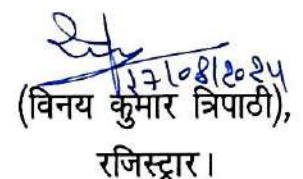 17/08/2024
(विनय कुमार त्रिपाठी),
रजिस्ट्रार।